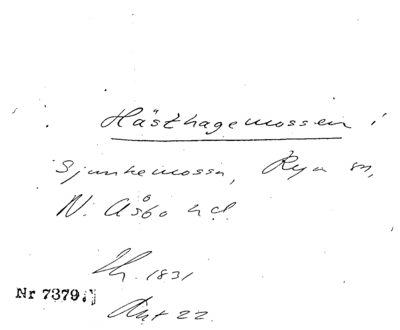 Hästhagemossen i
Sjunkemossa, Rya sn,
N. Åsbo hd
Th. 1831
Nr 7379.
Akt 22.